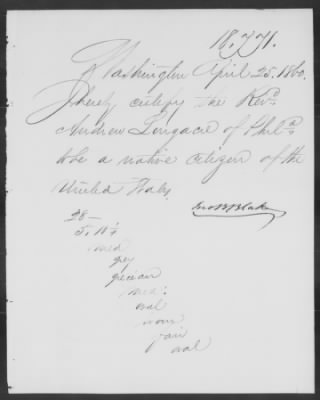 18,771.
Washington April 25. 1860.
I hereby certify the Revd.
Andrew Longacre of Phila.
to be a native citizen of the
United States.
Jno B Blake
28—
5. 11½
med
grey
grecian
med:
oval
fair
oval